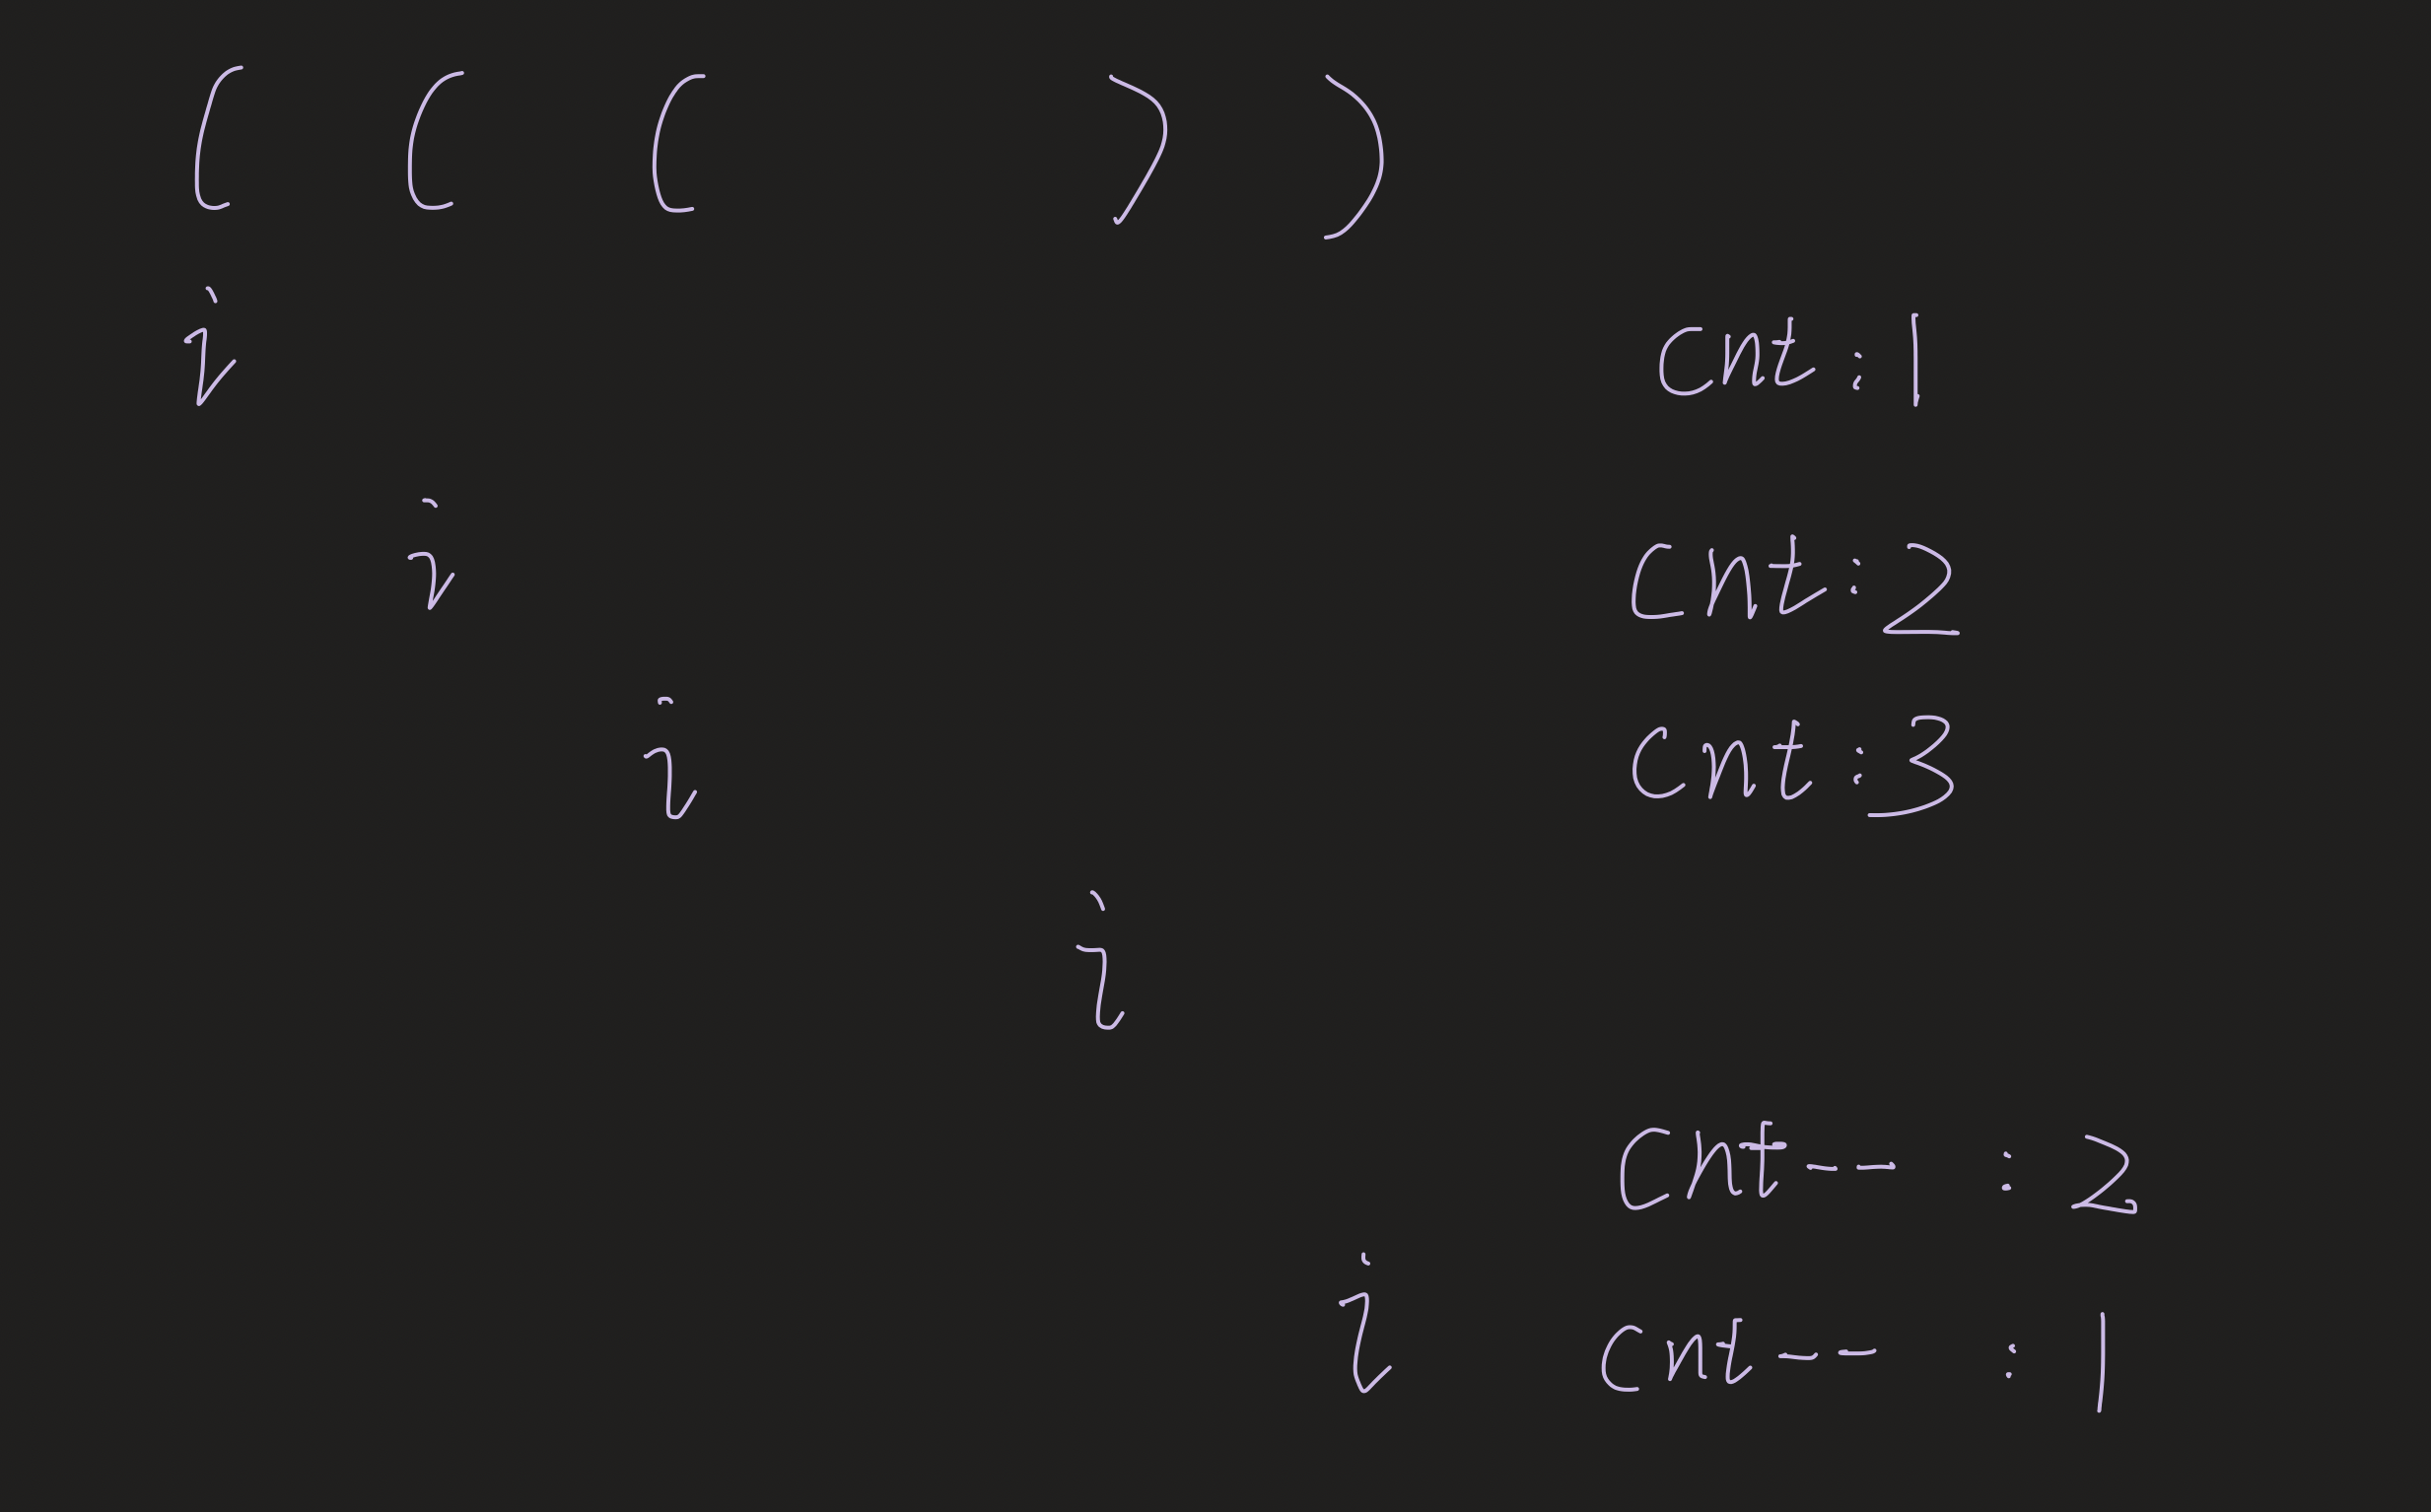 ( ( ( ) )
i cnt : 1
i cnt : 2
i cnt : 3
i
cnt -- : 2
i cnt -- : 1